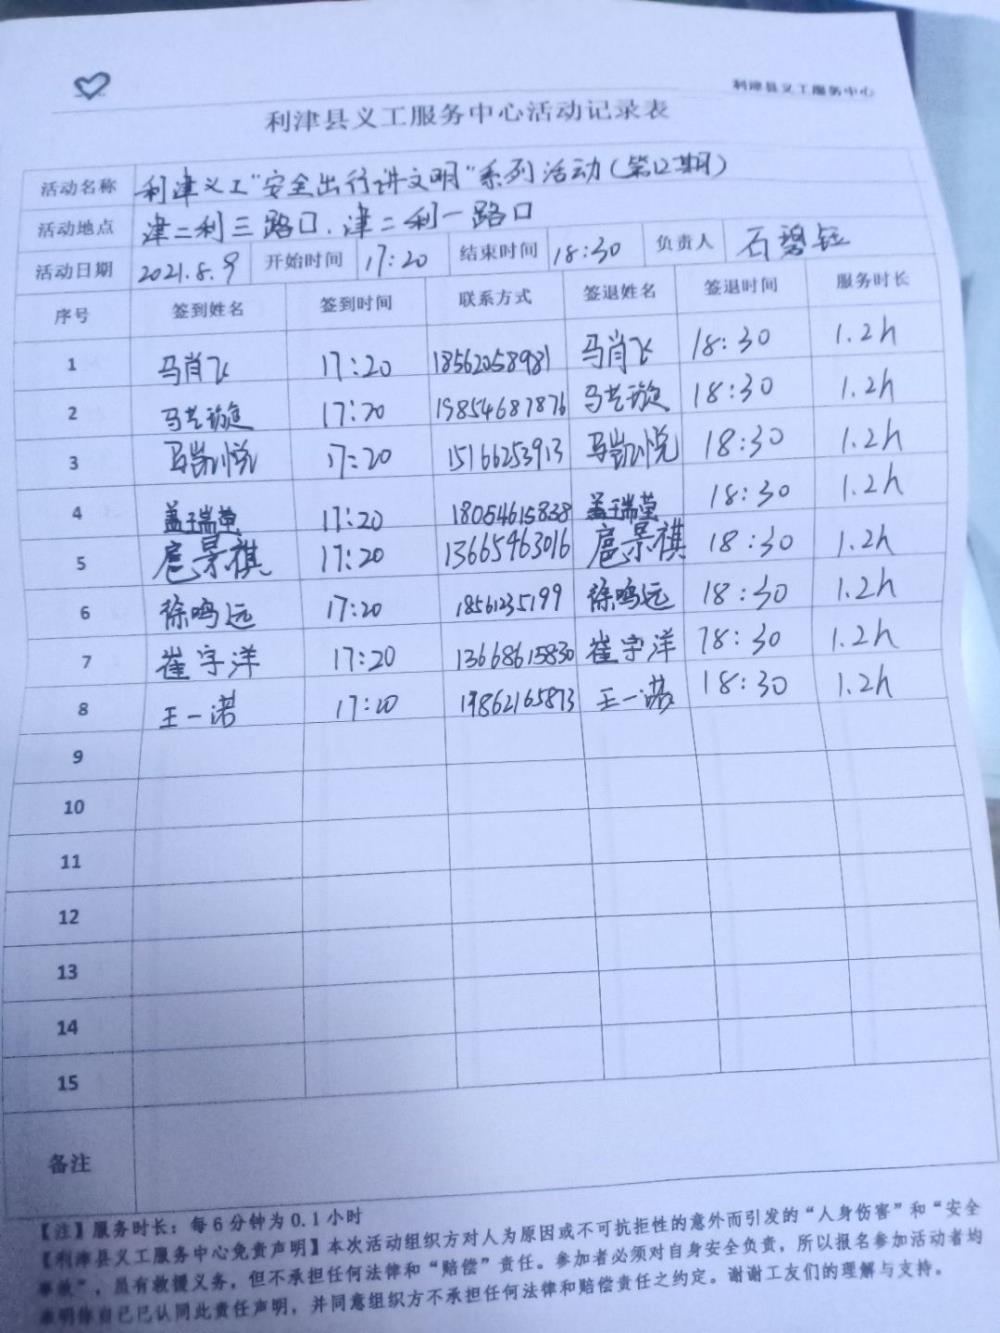 利津县义工服务中心
利津县义工服务中心活动记录表
活动名称 利津义工"安全出行讲文明"系列活动(第12期)
活动地点 津二利三路口、津二利一路口
活动日期 2021.8.9 开始时间 17:20 结束时间 18:30 负责人 石碧
序号 签到姓名 签到时间 联系方式 签退姓名 签退时间 服务时长
1 马肖飞 17:20 18562058981 马肖飞 18:30 1.2h
2 马艺璇 17:20 19854687876 马艺璇 18:30 1.2h
3 马凯悦 17:20 15166253913 马凯悦 18:30 1.2h
4 盖瑞莹 17:20 18054615838 盖瑞莹 18:30 1.2h
5 扈景祺 17:20 13665463016 扈景祺 18:30 1.2h
6 徐鸣远 17:20 18561235199 徐鸣远 18:30 1.2h
7 崔宇洋 17:20 13668615830 崔宇洋 18:30 1.2h
8 王一诺 17:20 19862165873 王一诺 18:30 1.2h
9
10
11
12
13
14
15
备注
【注】服务时长：每6分钟为0.1小时
【利津县义工服务中心免责声明】本次活动组织方对人为原因或不可抗拒性的意外而引发的“人身伤害”和“安全
事故”，虽有救援义务，但不承担任何法律和“赔偿”责任。参加者必须对自身安全负责，所以报名参加活动者均
表明你自己已认同此责任声明，并同意组织方不承担任何法律和赔偿责任之约定。谢谢工友们的理解与支持。